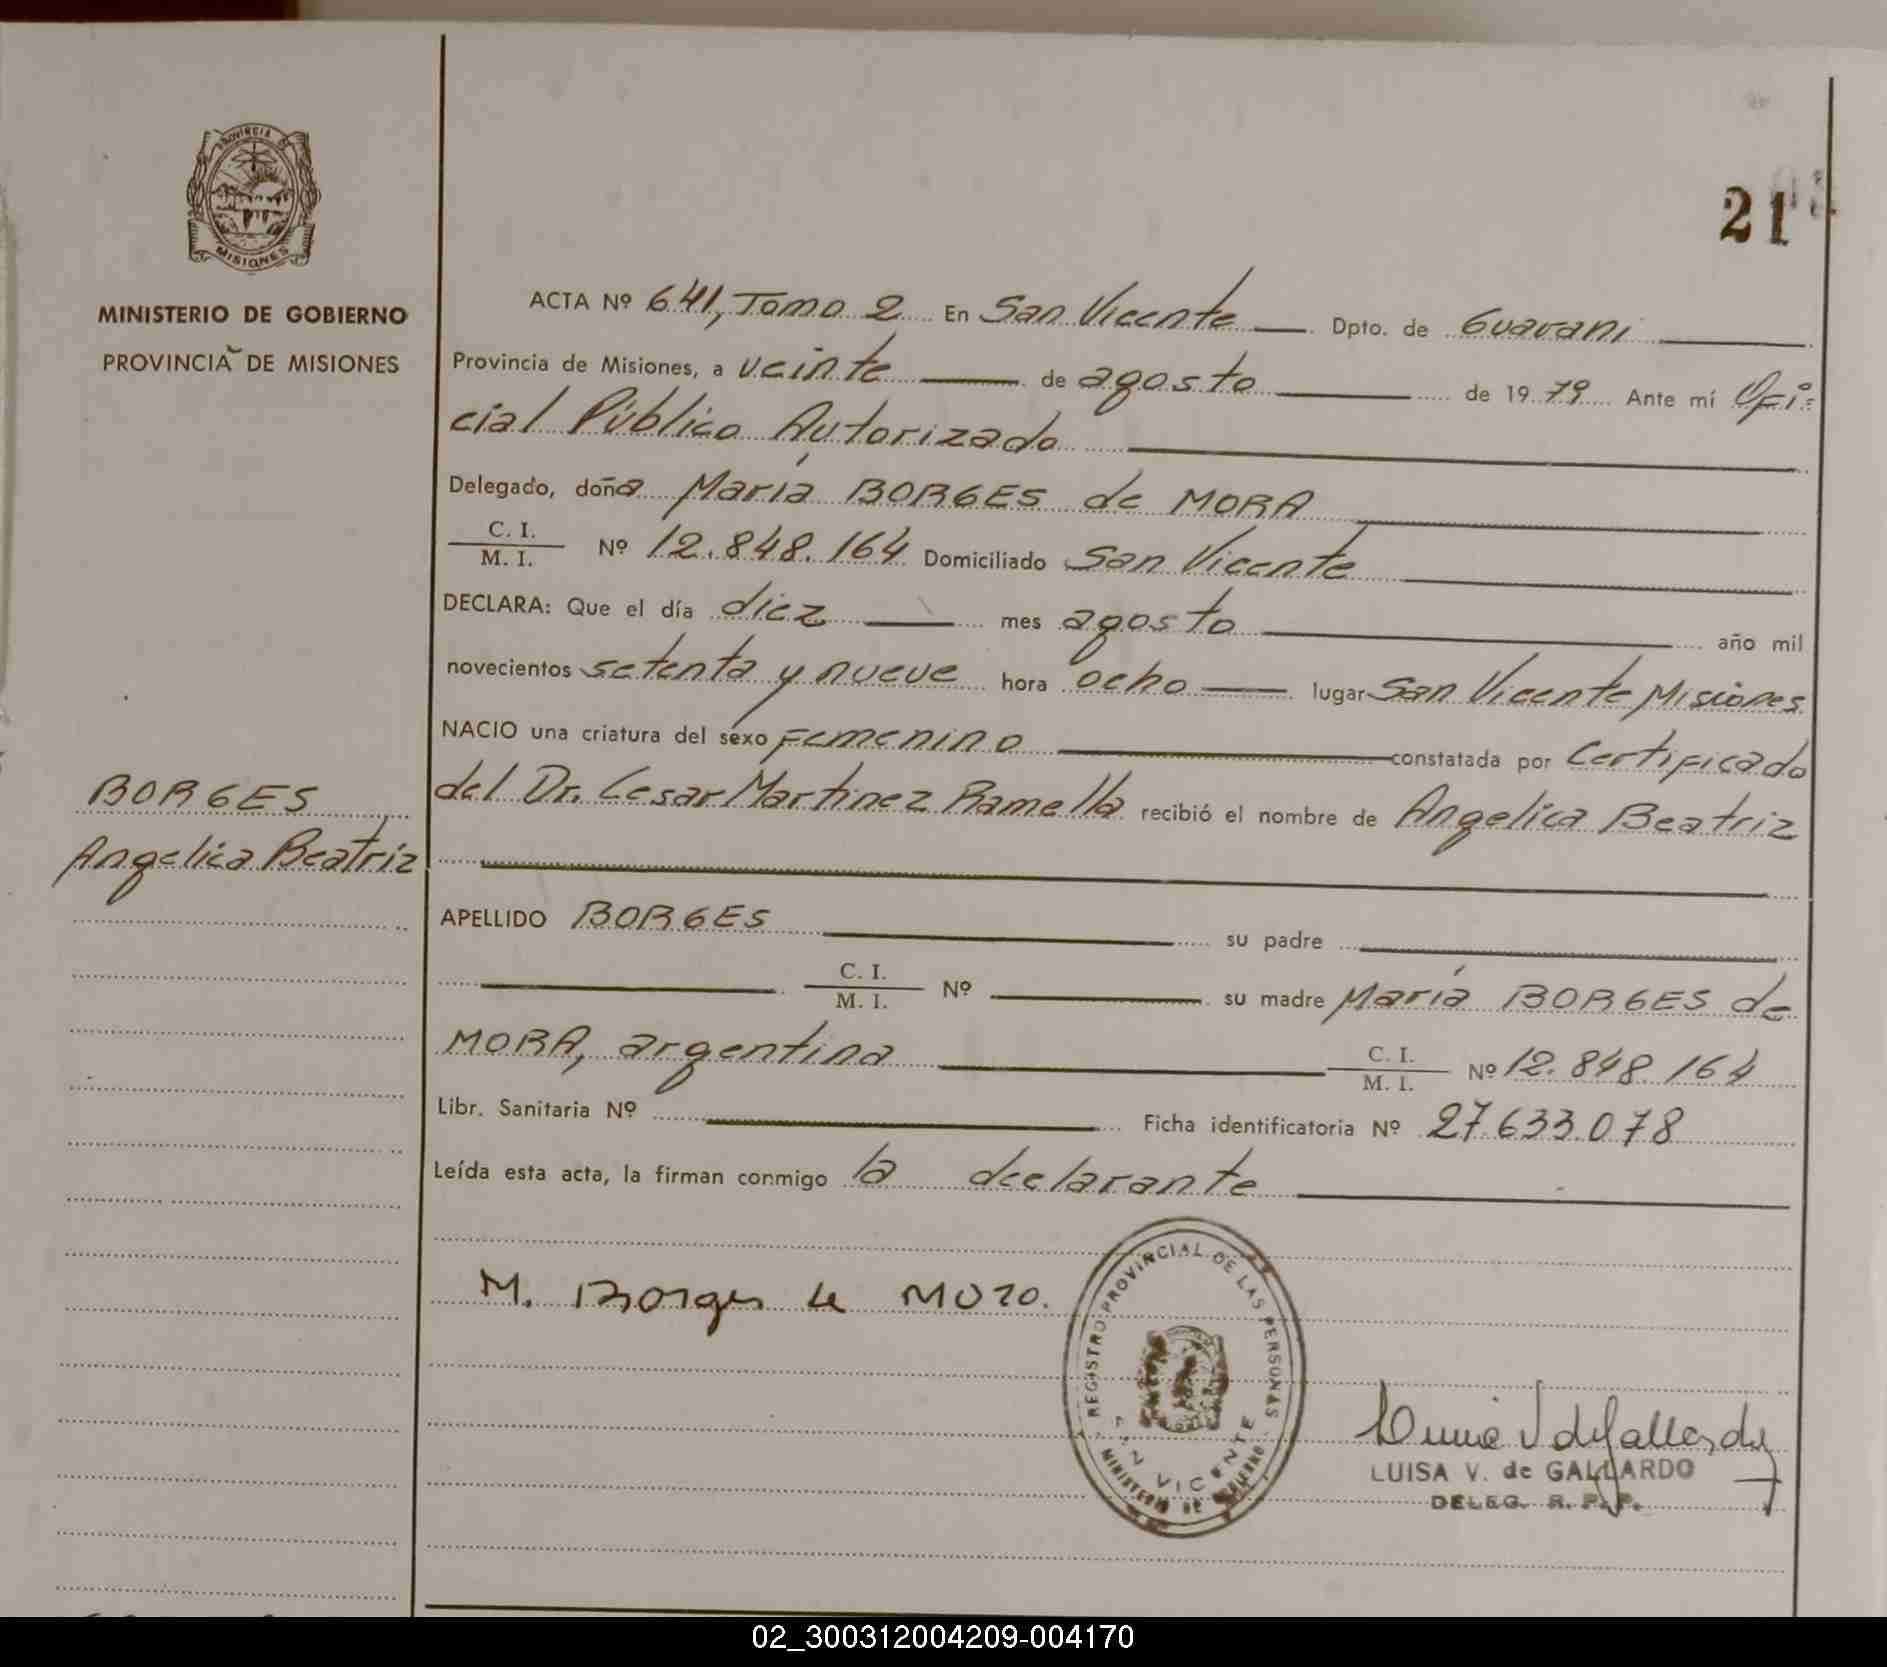 PROVINCIA DE
MISIONES
MINISTERIO DE GOBIERNO
PROVINCIA DE MISIONES
21
ACTA Nº 641, Tomo 2 En San Vicente Dpto. de Guarani
Provincia de Misiones, a veinte de agosto de 1979 Ante mí Ofi=
cial Público Autorizado
Delegado, doña María BORGES de MORA
C. I.
M. I. Nº 12.848.164 Domiciliado San Vicente
DECLARA: Que el día diez mes agosto año mil
novecientos setenta y nueve hora ocho lugar San Vicente Misiones
NACIO una criatura del sexo Femenino constatada por Certificado
del Dr. Cesar Martinez Ramella recibió el nombre de Angelica Beatriz
BORGES
Angelica Beatriz
APELLIDO BORGES su padre
C. I.
M. I. Nº su madre María BORGES de
MORA, argentina C. I.
M. I. Nº 12.848.164
Libr. Sanitaria Nº Ficha identificatoria Nº 27.633.078
Leída esta acta, la firman conmigo la declarante
M. Borges de Mora.
REGISTRO PROVINCIAL DE LAS PERSONAS
SAN VICENTE
MINISTERIO DE GOBIERNO
Luisa V de Gallardo
LUISA V. de GALLARDO
DELEG. R. P. P.
02_300312004209-004170